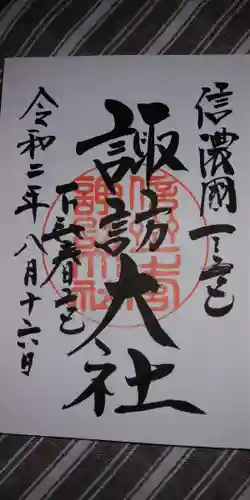 信濃國一之宮
諏訪大社
下社春之宮
令和二年八月十六日